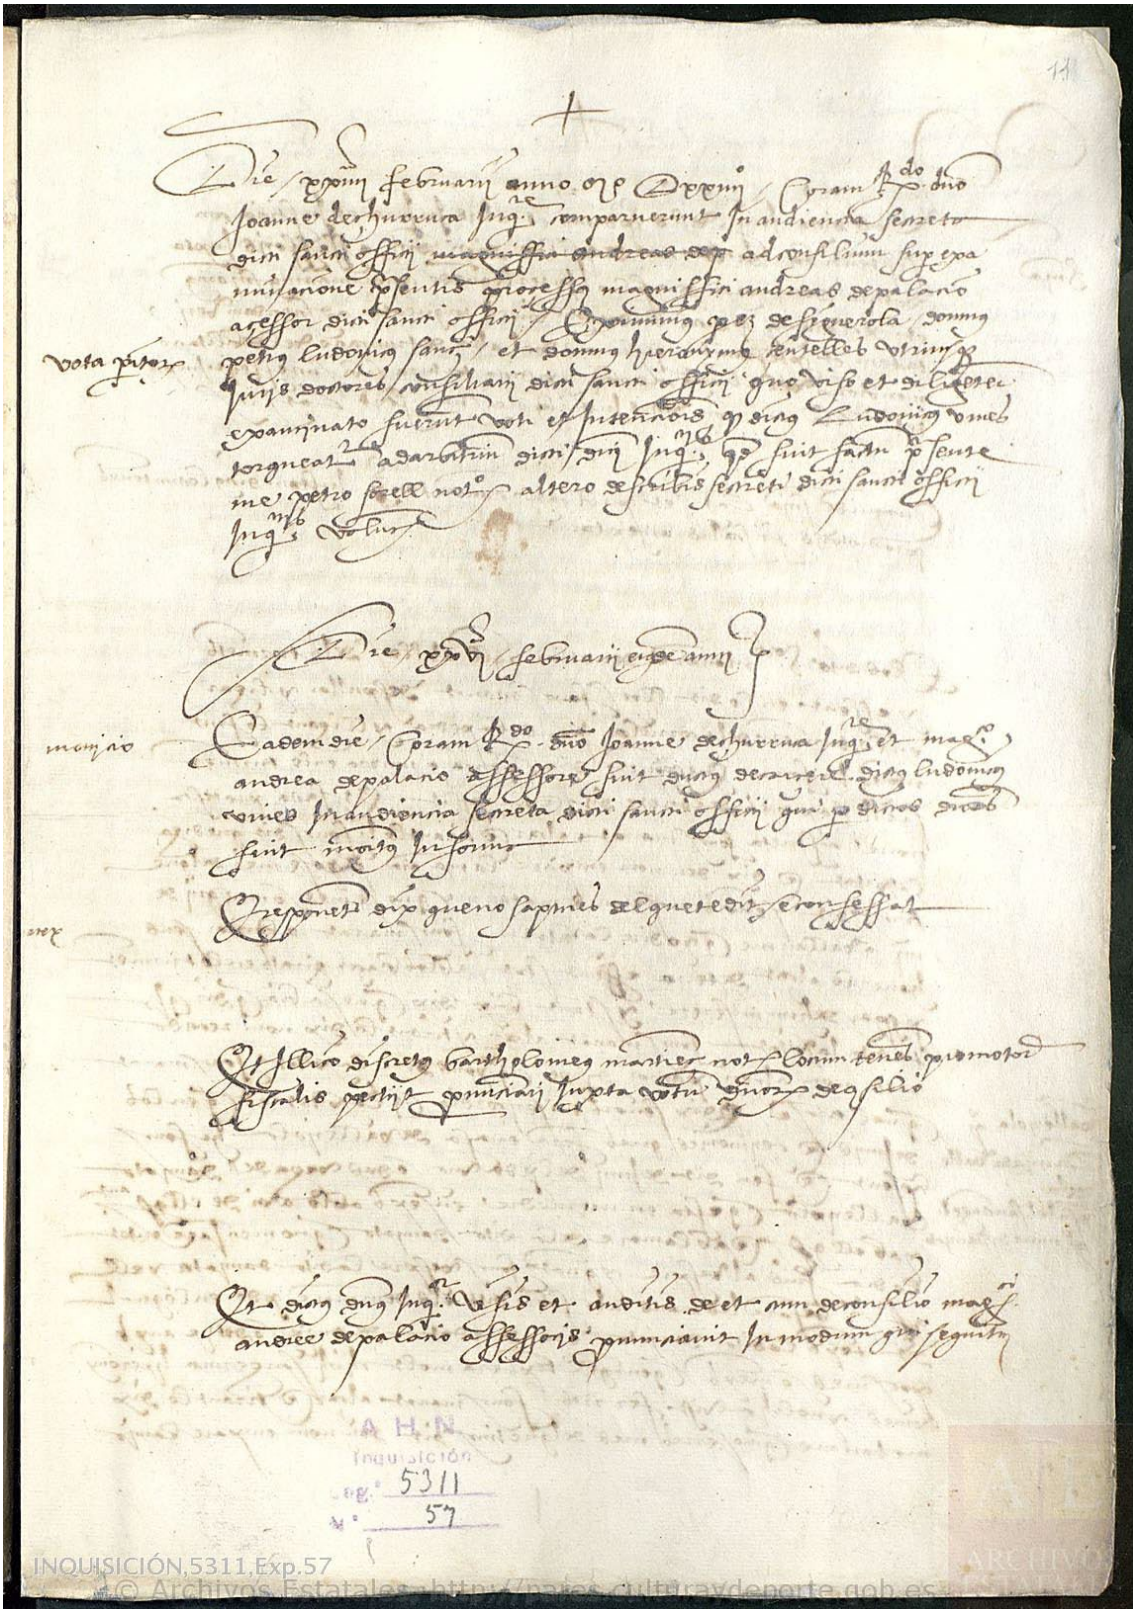 11
Die xxiiii februarii anno M D xxiiii Coram Rdo dno
Joanne de churruca Inqre comparuerunt In audiencia secreta
dicti sancti officij magniffici andreas dep ad consilium sup exa
minacione psentis processus magniffici andreas de palacio
acessor dicti sancti officij perez de figuerola domnus
vota peritor
petrus ludovicus sanç et domnus hieronimus centelles utriusq
Jurjs doctores consiliarii dicti sancti officij quo viso et diligeter
examinato fuerunt voti et Intencionis q dictus Ludovicus vives
torqueatr ad arbitrium dicti dni Inq qd fuit factu psente
me petro sorell not altero de scribis secreti dicti sancti officij
Inq
Die xxvi februarii eiusde anni
monicio
Eadem die Coram Rdo dno Joanne de churruca Inqre et mag
andrea de palacio assessore fuit ductus de carcere dictus ludovicus
vives In audiencia secreta dicti sancti officij qui p dictos dnos
fuit monitus In forma
Et respones dix que no sap mes del que te dit e confessat
nex
Et Illico discretus bartholomeus martinez not locum tenes promotor
fiscalis petijt pnunciari Juxta votu dnor de q silio
Et dictus dnus Inqr visis et auditis de et cum de consilio mag
andree de palacio assessoris pnunciavit In modum qui sequitur
A H N
Inquisición
Leg.º 5311
N.º 57
INQUISICIÓN,5311,Exp.57
© Archivos Estatales http://pares.culturaydeporte.gob.es
ARCHIVO